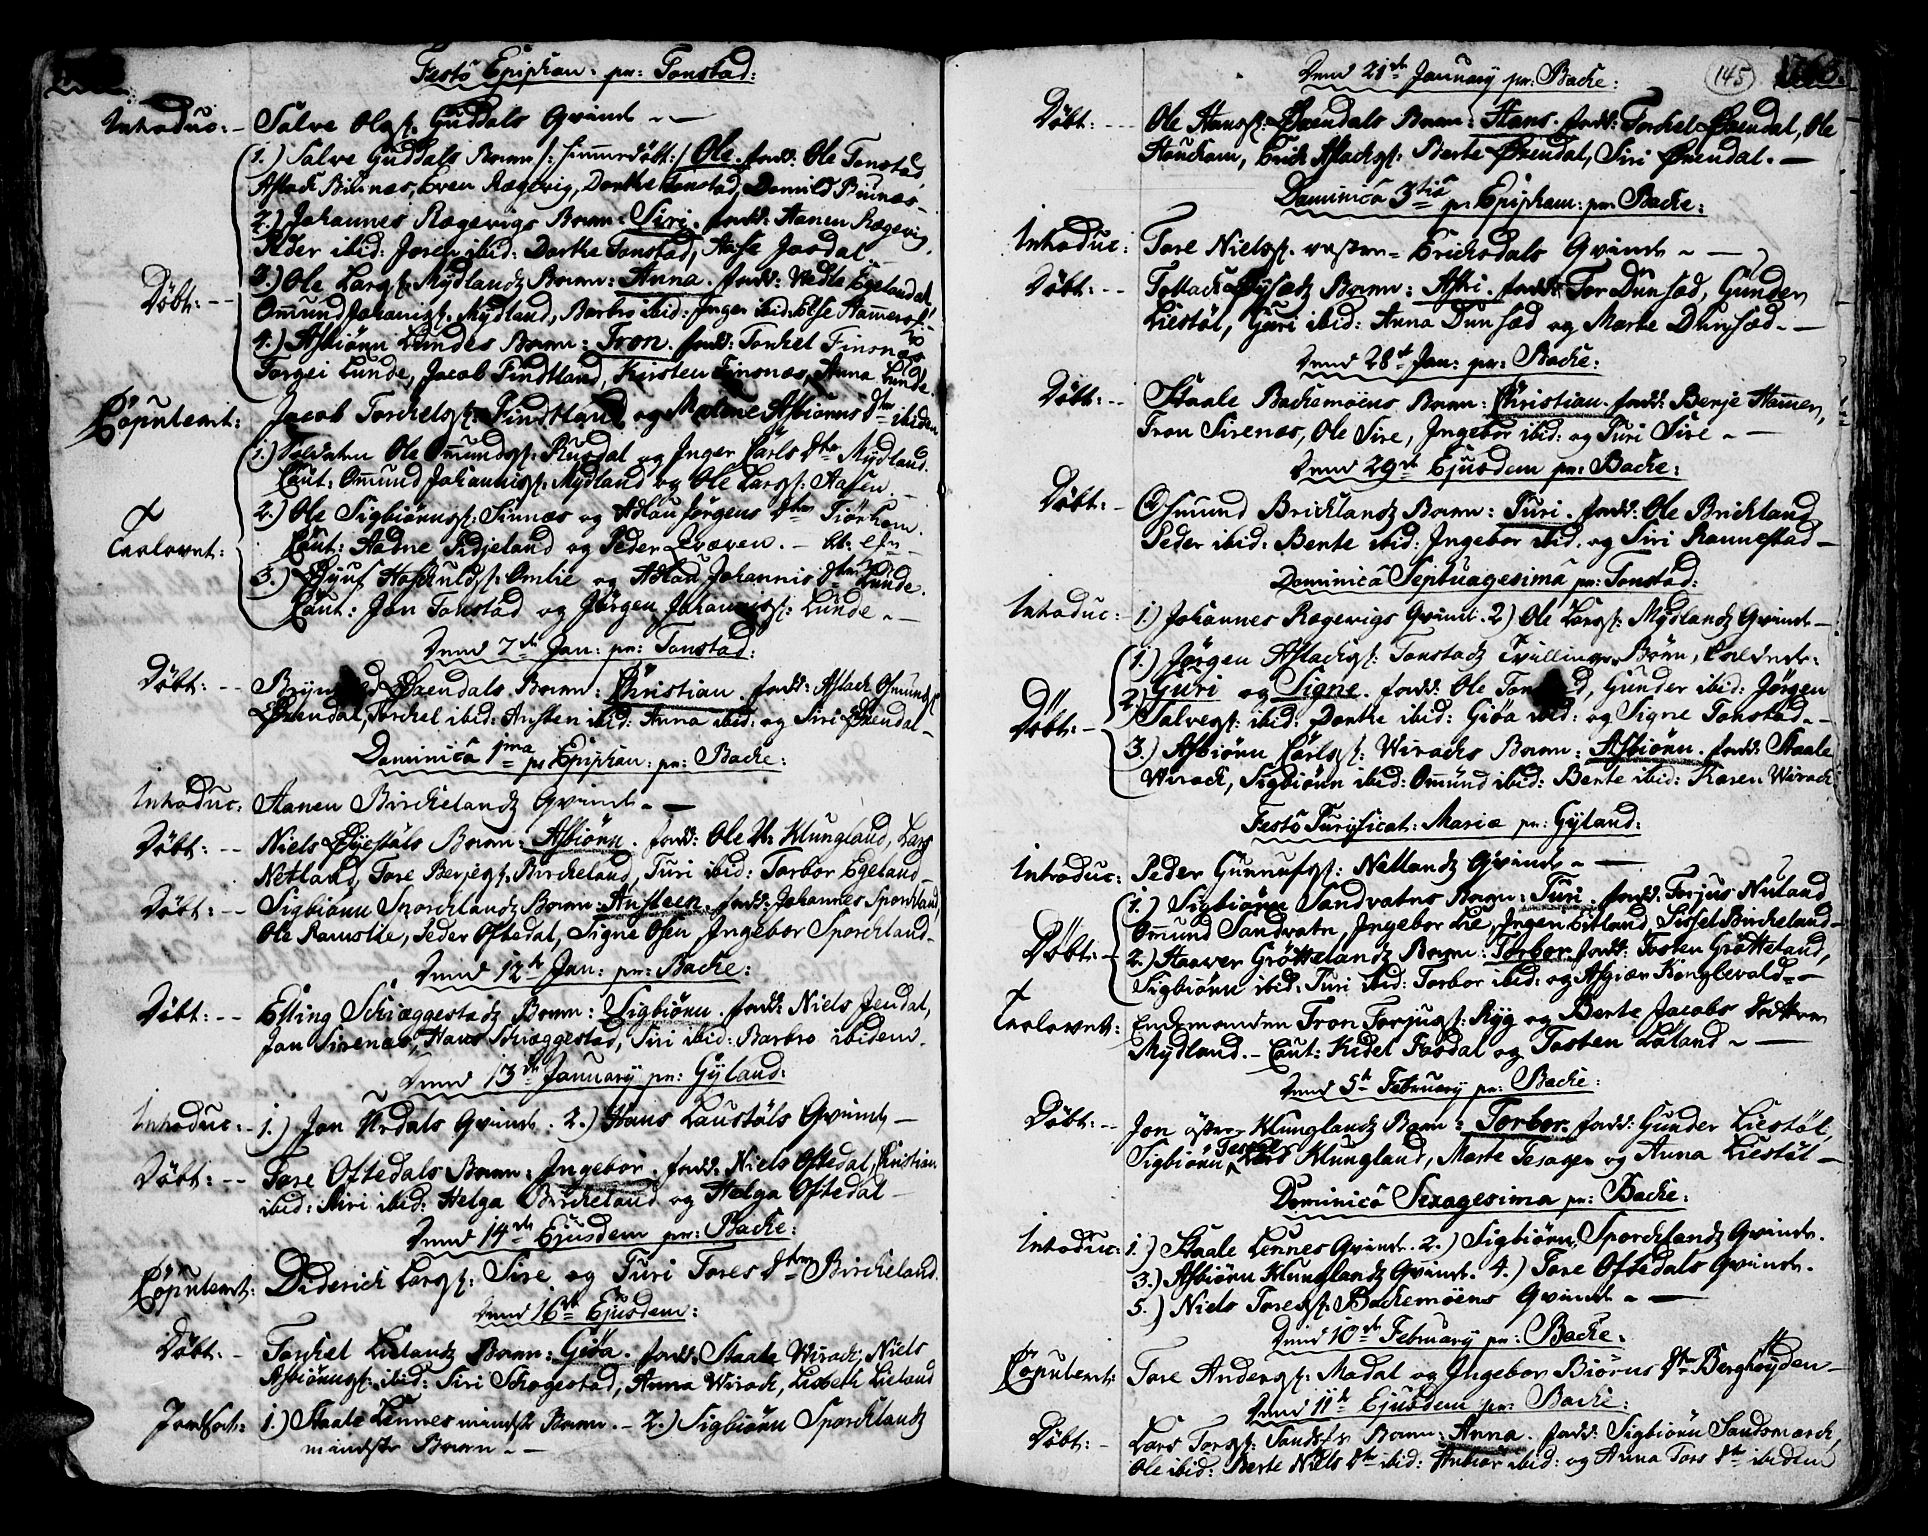 Festo Epiphan: pr: Tonstad:
Introduc: - Salve Olsøf: Guddals Qvinde - -
1.) Salve Guddals Barn /: hiemmedöbt :/ Ole. fadd: Ole Tonstad
Aslach Biunæs, Even Rægevig, Dorthe Tonstad, Biunæs -
2.) Johannes Rægevigs Barn: Siri. fadd: Aanen Rægevig
Peder ibid: Joren ibid: Dorthe Tonstad, Aase Josdal -
Döbt: - - 3.) Ole Larsøf: Mydlandz Barn: Anna. fadd: Vedle Egelandal
Ommund Johannisøf: Mydland, Barbro ibid: Inger ibid: Else Hammers
4.) Asbiörn Lundes Barn: Tron. fadd: Torkel Finsnæs
Torgei Lunde, Jacob Findtland, Kirsten Finsnæs, Anna Lunde
Copulerit: Jacob Torchelsøf: Findtland og Malene Asbiörns Dtr ibidem
1.) Soldaten Ole Ommundsøf: Rusdal og Inger Carls Dtr Mydland.
Caut: Ommund Johannisøf: Mydland og Ole Larsøf: Aasen -
Trolovet: 2.) Ole Sigbiörnsøf: Sinnæs og Adlau Jörgens Dtr Tiörhom.
Caut: Aadne Tidjeland og Peder Qvæven. -
3.) Öyuf Hoskuldsøf: Omlie og Adlau Johannis Dtr Lunde.
Caut: Jon Tonstad og Jörgen Johannisøf: Lunde - -
Dend 7de Jan: pr: Tonstad:
Döbt: - - Øxendals Barn: Christian. fadd: Aslach Osmundsøf
Øxendal, Torchel ibid: Austen ibid: Anna ibid: og Siri Øxendal -
Dominica 1ma pr Epiphan: pr: Backe:
Introduc: Aanen Birckelandz Qvinde - -
Döbt: - - Niels Öyestöls Barn: Asbiörn. fadd: Ole N: Klungland, Lars
Netland, Tore Berjesøf: Birckeland, Turi ibid: Torbor Egeland
Döbt: - - Sigbiörn Sporcklandz Barn: Austeen. fadd: Johannes Sporckland,
Ole Ramslie, Peder Oftedal, Signe Osen, Ingebor Sporckland -
Dend 12te Jan: pr: Backe:
Döbt: - - Elling Schiæggestadz Barn: Sigbiörn. fadd: Niels Jendal,
Jon Sirenæs, Hans Schiæggestad, Siri ibid: Barbro ibidem.
Dend 13de January pr: Gyland:
Introduc: - 1.) Jon Urdals Qvinde. 2.) Hans Laustöls Qvinde -
Döbt: - - Tore Oftedals Barn: Ingebor. fadd: Niels Oftedal, Christian
ibid: Siri ibid: Helga Birckeland og Helga Oftedal -
Dend 14de Ejusdem pr: Backe:
Copulerit: Diderich Larsøf: Sire og Turi Tores Dtr Birckeland
Dend 16de Ejusdem:
Döbt: - Torckel Lielandz Barn: Giöa. fadd: Staale Wirack, Niels
Asbiörnsøf: ibid: Siri Schogestad, Anna Wirack, Lisbeth Lieland
Jordfæst: 1.) Staale Lennes mindste Barn. - 2.) Sigbiörn Sporcklandz
mindste Barn - -
145
1763.
Dend 21de January pr: Backe:
Döbt: - - Ole Hansøf: Øxendals Barn: Hans. fadd: Torckel Øxendal, Ole
Houckom, Erick Aslachsøf: Berte Øxendal, Siri Øxendal. -
Dominica 3tia pr Epiphan: pr: Backe:
Introduc: Tore Nielsøf: vester Erichsdals Qvinde - -
Döbt: - - Tollack Barn: Astri. fadd: Tor Dunsæd, Gunder
Liestöl, Guri ibid: Anna Dunsæd og Marte Dunsæd. -
Dend 28de Jan: pr: Backe:
Döbt: - - Staale Backemoens Barn: Christian. fadd: Berje Hammer,
Tron Sirenæs, Ole Sire, Ingebor ibid: og Turi Sire - -
Dend 29de Ejusdem pr: Backe:
Döbt: - Osmund Bricklandz Barn: Turi. fadd: Ole Brickland
Peder ibid: Bente ibid: Ingebor ibid. og Siri Rannestad -
Dominica Septuagesima pr: Tonstad:
Introduc: 1.) Johannes Rægevigs Qvinde. 2.) Ole Larsøf: Mydlandz Qvinde -
1.) Jörgen Aslachsøf: Tonstadz Tvillinger Börn, kaldede:
2.) Guri og Signe. fadd: Ole Tonstad, Gunder ibid: Jörgen
Döbt: - Salvesøf: ibid: Dorthe ibid: Giöa ibid: og Signe Tonstad. -
3.) Asbiörn Carlsøf: Wiracks Barn: Asbiörn. fadd: Staale
Wirack, Sigbiörn ibid: Ommund ibid: Berte ibid: Karen Wirack
Festo Purificat: Mariæ pr: Gyland:
Introduc: Peder Gunnufsøf: Netlandz Qvinde - -
1.) Sigbiörn Sandvatns Barn: Turi. fadd: Torjus Nuland
Ommund Sandvatn, Ingebor Lie, Inger Eitland, Sissel Birckeland -
Döbt: - 2.) Haaver Gröttelandz Barn: Torbor. fadd: Tosten Grötteland,
Sigbiörn ibid: Turi ibid: Torbor ibid: og Asgier Konglevold -
Trolovet: Enckemanden Tron Torjusøf: Ryg og Berte Jacobs Datter
Mydland. - Caut: Kidel Josdal og Tosten Löland - -
Dend 5te February pr: Backe:
Döbt: - - Jon östre Klunglandz Barn: Torbor. fadd: Gunder Liestöl,
Sigbiörn Klungland, Marte Tesager og Anna Liestöl -
Dominica Sexagesima pr: Backe:
Introduc: 1.) Staale Lennes Qvinde. 2.) Sigbiörn Sporcklandz Qvinde.
3.) Asbiörn Klunglandz Qvinde. 4.) Tore Oftedals Qvinde.
5.) Niels Toresøf: Backemoens Qvinde - -
Dend 10de February pr: Backe:
Copulerit: Tore Andersøf: Modal og Ingebor Biörns Dtr Berghöyden -
Dend 11de Ejusdem pr: Backe:
Döbt: - Lars Torsøf: Barn: Anna. fadd: Sigbiörn Sandsmarck,
Ole ibid: Berte Niels Dtr ibid: Anbiör ibid: og Anna Tors Dtr ibidem